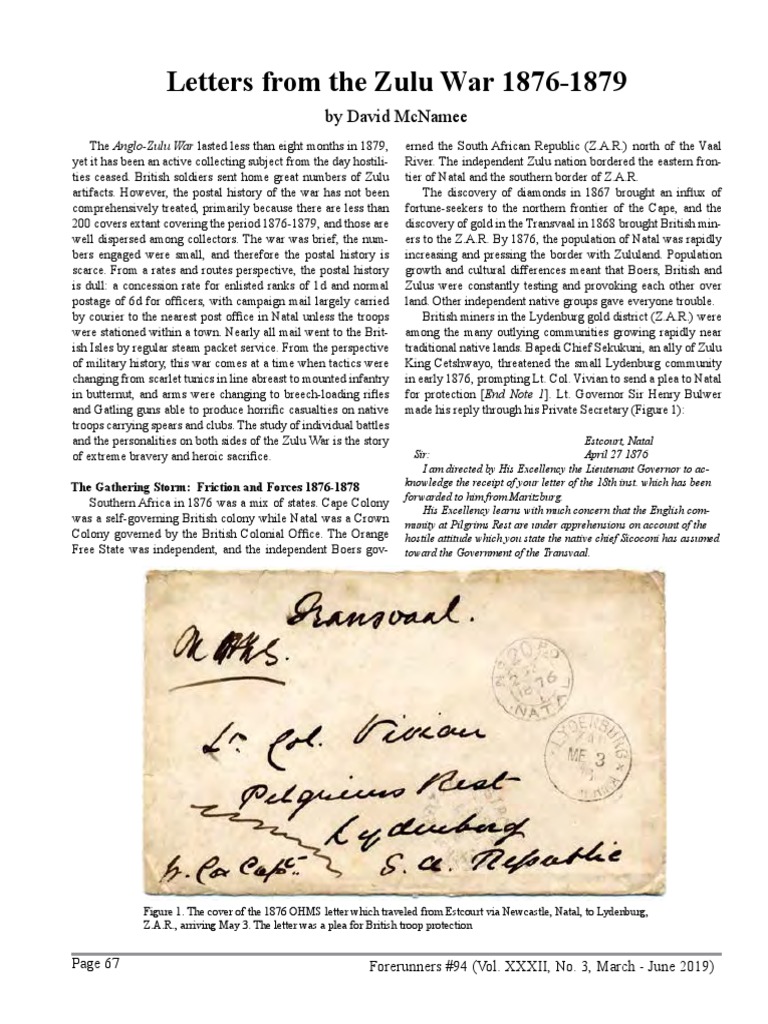 Letters from the Zulu War 1876-1879
by David McNamee
The Anglo-Zulu War lasted less than eight months in 1879,
yet it has been an active collecting subject from the day hostili-
ties ceased. British soldiers sent home great numbers of Zulu
artifacts. However, the postal history of the war has not been
comprehensively treated, primarily because there are less than
200 covers extant covering the period 1876-1879, and those are
well dispersed among collectors. The war was brief, the num-
bers engaged were small, and therefore the postal history is
scarce. From a rates and routes perspective, the postal history
is dull: a concession rate for enlisted ranks of 1d and normal
postage of 6d for officers, with campaign mail largely carried
by courier to the nearest post office in Natal unless the troops
were stationed within a town. Nearly all mail went to the Brit-
ish Isles by regular steam packet service. From the perspective
of military history, this war comes at a time when tactics were
changing from scarlet tunics in line abreast to mounted infantry
in butternut, and arms were changing to breech-loading rifles
and Gatling guns able to produce horrific casualties on native
troops carrying spears and clubs. The study of individual battles
and the personalities on both sides of the Zulu War is the story
of extreme bravery and heroic sacrifice.
The Gathering Storm: Friction and Forces 1876-1878
Southern Africa in 1876 was a mix of states. Cape Colony
was a self-governing British colony while Natal was a Crown
Colony governed by the British Colonial Office. The Orange
Free State was independent, and the independent Boers gov-
erned the South African Republic (Z.A.R.) north of the Vaal
River. The independent Zulu nation bordered the eastern fron-
tier of Natal and the southern border of Z.A.R.
The discovery of diamonds in 1867 brought an influx of
fortune-seekers to the northern frontier of the Cape, and the
discovery of gold in the Transvaal in 1868 brought British min-
ers to the Z.A.R. By 1876, the population of Natal was rapidly
increasing and pressing the border with Zululand. Population
growth and cultural differences meant that Boers, British and
Zulus were constantly testing and provoking each other over
land. Other independent native groups gave everyone trouble.
British miners in the Lydenburg gold district (Z.A.R.) were
among the many outlying communities growing rapidly near
traditional native lands. Bapedi Chief Sekukuni, an ally of Zulu
King Cetshwayo, threatened the small Lydenburg community
in early 1876, prompting Lt. Col. Vivian to send a plea to Natal
for protection [End Note 1]. Lt. Governor Sir Henry Bulwer
made his reply through his Private Secretary (Figure 1):
Estcourt, Natal
Sir: April 27 1876
I am directed by His Excellency the Lieutenant Governor to ac-
knowledge the receipt of your letter of the 18th inst. which has been
forwarded to him from Maritzburg.
His Excellency learns with much concern that the English com-
munity at Pilgrims Rest are under apprehensions on account of the
hostile attitude which you state the native chief Sicoconi has assumed
toward the Government of the Transvaal.
Transvaal.
NATAL
Lt. Col. Vivian
LYDENBURG
ME 3
Pilgrims Rest
Lydenburg
S. A. Republic
Figure 1. The cover of the 1876 OHMS letter which traveled from Estcourt via Newcastle, Natal, to Lydenburg,
Z.A.R., arriving May 3. The letter was a plea for British troop protection
Page 67
Forerunners #94 (Vol. XXXII, No. 3, March - June 2019)